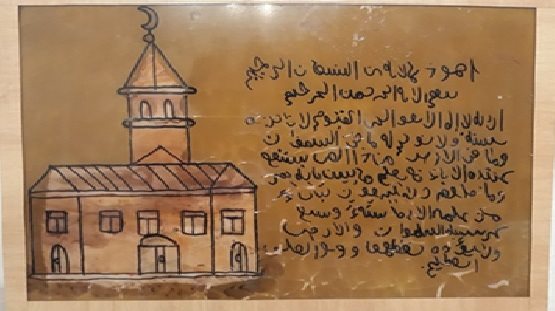 اعوذ بالله من الشيطان الرجيم
بسم الله الرحمن الرحيم
الله لا اله الا هو الحي القيوم لا تاخذه
سنة ولا نوم له ما في السموات
وما في الارض من ذا الذي يشفع
عنده الا باذنه يعلم ما بين
وما خلفهم ولا يحيطون
من علمه الا بما شاء وسع
كرسيه السموات والارض
ولا يؤده حفظهما وهو العلي
العظيم